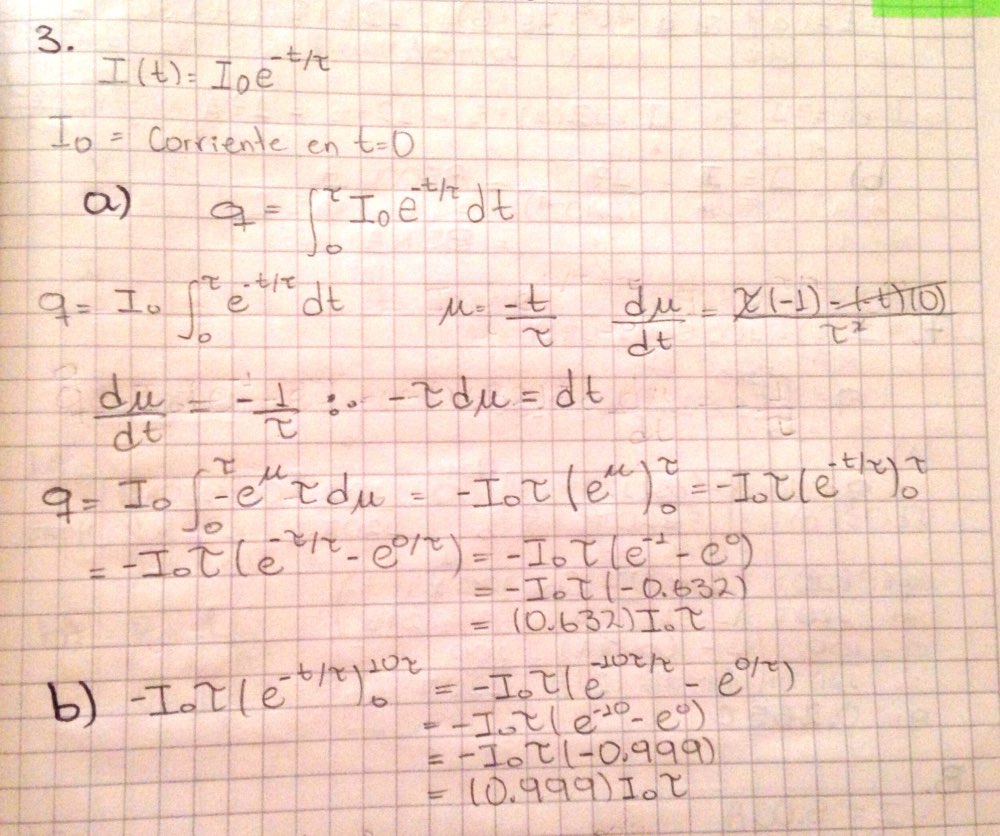 3.
I(t) = I₀e^(-t/τ)
I₀ = Corriente en t=0
a) q = ∫₀^τ I₀e^(-t/τ) dt
q = I₀ ∫₀^τ e^(-t/τ) dt    μ = -t/τ    dμ/dt = (τ(-1) - (-t)(0))/τ²
dμ/dt = -1/τ ∴ -τdμ = dt
q = I₀ ∫₀^τ -e^μ τdμ = -I₀τ(e^μ)₀^τ = -I₀τ(e^(-t/τ))₀^τ
= -I₀τ(e^(-τ/τ) - e^(0/τ)) = -I₀τ(e^(-1) - e^0)
= -I₀τ(-0.632)
= (0.632)I₀τ
b) -I₀τ(e^(-t/τ))₀^(10τ) = -I₀τ(e^(-10τ/τ) - e^(0/τ))
= -I₀τ(e^(-10) - e^0)
= -I₀τ(-0.999)
= (0.999)I₀τ